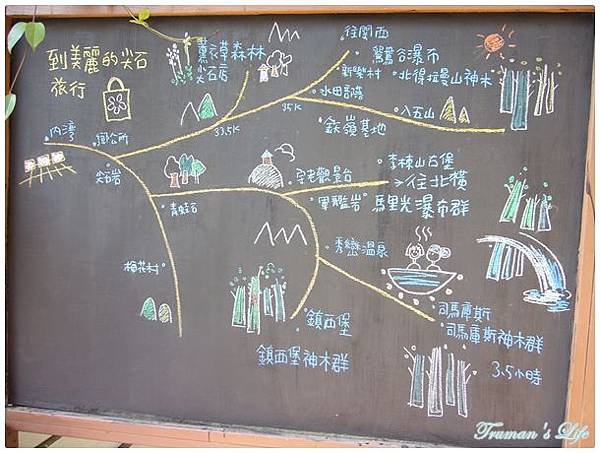 到美麗的尖石
旅行
薰衣草森林
尖石店
往關西
鴛鴦谷瀑布
新樂村
北得拉曼山神木
水田部落
35K
八五山
內灣
鄉公所
33.5K
鎮嶺基地
尖石岩
李棟山古堡
宇老觀景台
往北橫
軍艦岩
馬里光瀑布群
青蛙石
秀巒溫泉
梅花村
鎮西堡
鎮西堡神木群
司馬庫斯
司馬庫斯神木群
3.5小時
Truman's Life